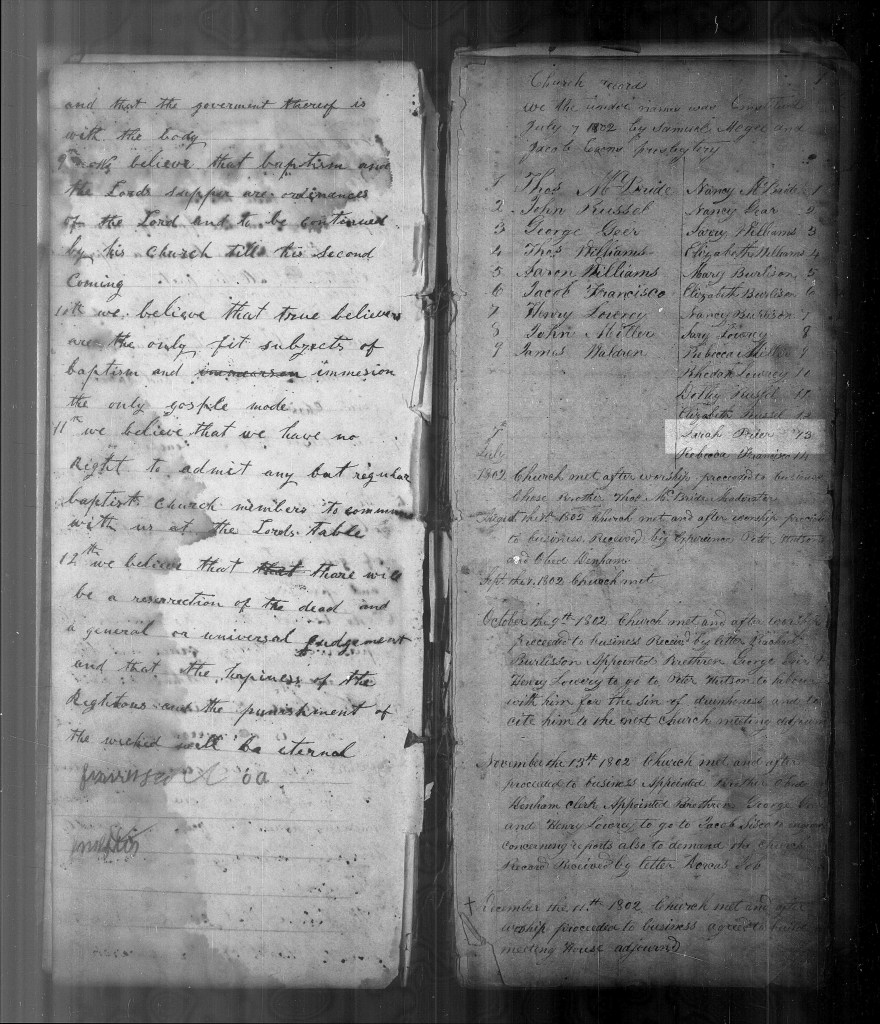 and that the goverment thereof is
with the body
9th we believe that baptism and
the Lords supper are ordinances
of the Lord and to be continued
by his Church till his second
Coming
10th we believe that true believers
are the only fit subjects of
baptism and immersion
the only gosple mode
11th we believe that we have no
Right to admit any but regular
baptist Church members to commune
with us at the Lords table
12th we believe that that thare will
be a resurrection of the dead and
a general or universal Judgement
and that the hapiness of the
Righteous and the punishment of
the wicked will be eternal
Church record
we the under names was Constituted
July 7 1802 by Samuel McGee and
Jacob presbytery
1 Thos McBride Nancy McBride 1
2 John Russel Nancy Gear 2
3 George Geer Williams 3
4 Thos Williams Elizabeth Williams 4
5 Aaren Williams Mary Burlison 5
6 Jacob Francisco Elizabeth Burlison 6
7 Henry Lowrey Nancy Burlison 7
8 John Miller Lowrey 8
9 James Waldren Rebecca Miller 9
Rhodah Lowrey 10
Dolley Russel 11
Elizabeth Russel 12
7th Sarah 13
July Rebecca Francisco 14
1802 Church met after worship proceeded to business
Chose Brother Thos McBride Moderator
August the 1802 Church met and after worship proceeded
to business. Received by Experience Peter Hutson
and Obed Denham
Sept the 1802 Church met
October the 9th 1802 Church met and after worship
proceeded to business Received by letter
Burliston Appointed Brethren George Geer &
Henry Lowrey to go to Peter Hutson to labour
with him for the Sin of drunkness and to
cite him to the next Church meeting adjourn
November the 13th 1802 Church met and after
proceeded to business Appointed Brother Obed
Denham Clerk Appointed Brethren George
and Henry Lowrey to go to Jacob
concerning reports also to demand the Church
Record Received by letter Dorcas Job
December the 11th 1802 Church met and after
worship proceeded to business agreed to build
meeting House adjourned